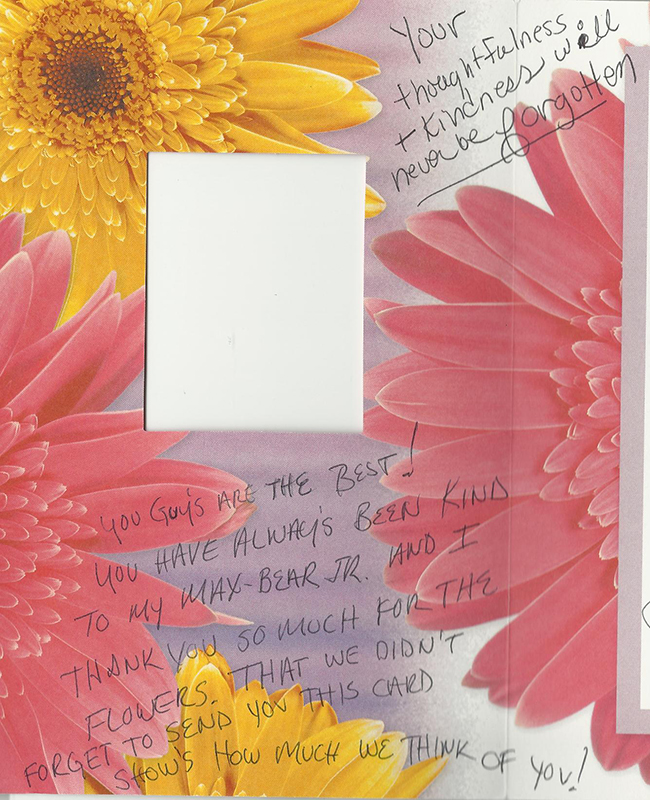 Your
thoughtfulness
+ kindness will
never be forgotten
YOU GUY'S ARE THE BEST!
YOU HAVE ALWAY'S BEEN KIND
TO MY MAX-BEAR JR. AND I
THANK YOU SO MUCH FOR THE
FLOWERS. THAT WE DIDN'T
FORGET TO SEND YOU THIS CARD
SHOW'S HOW MUCH WE THINK OF YOU!